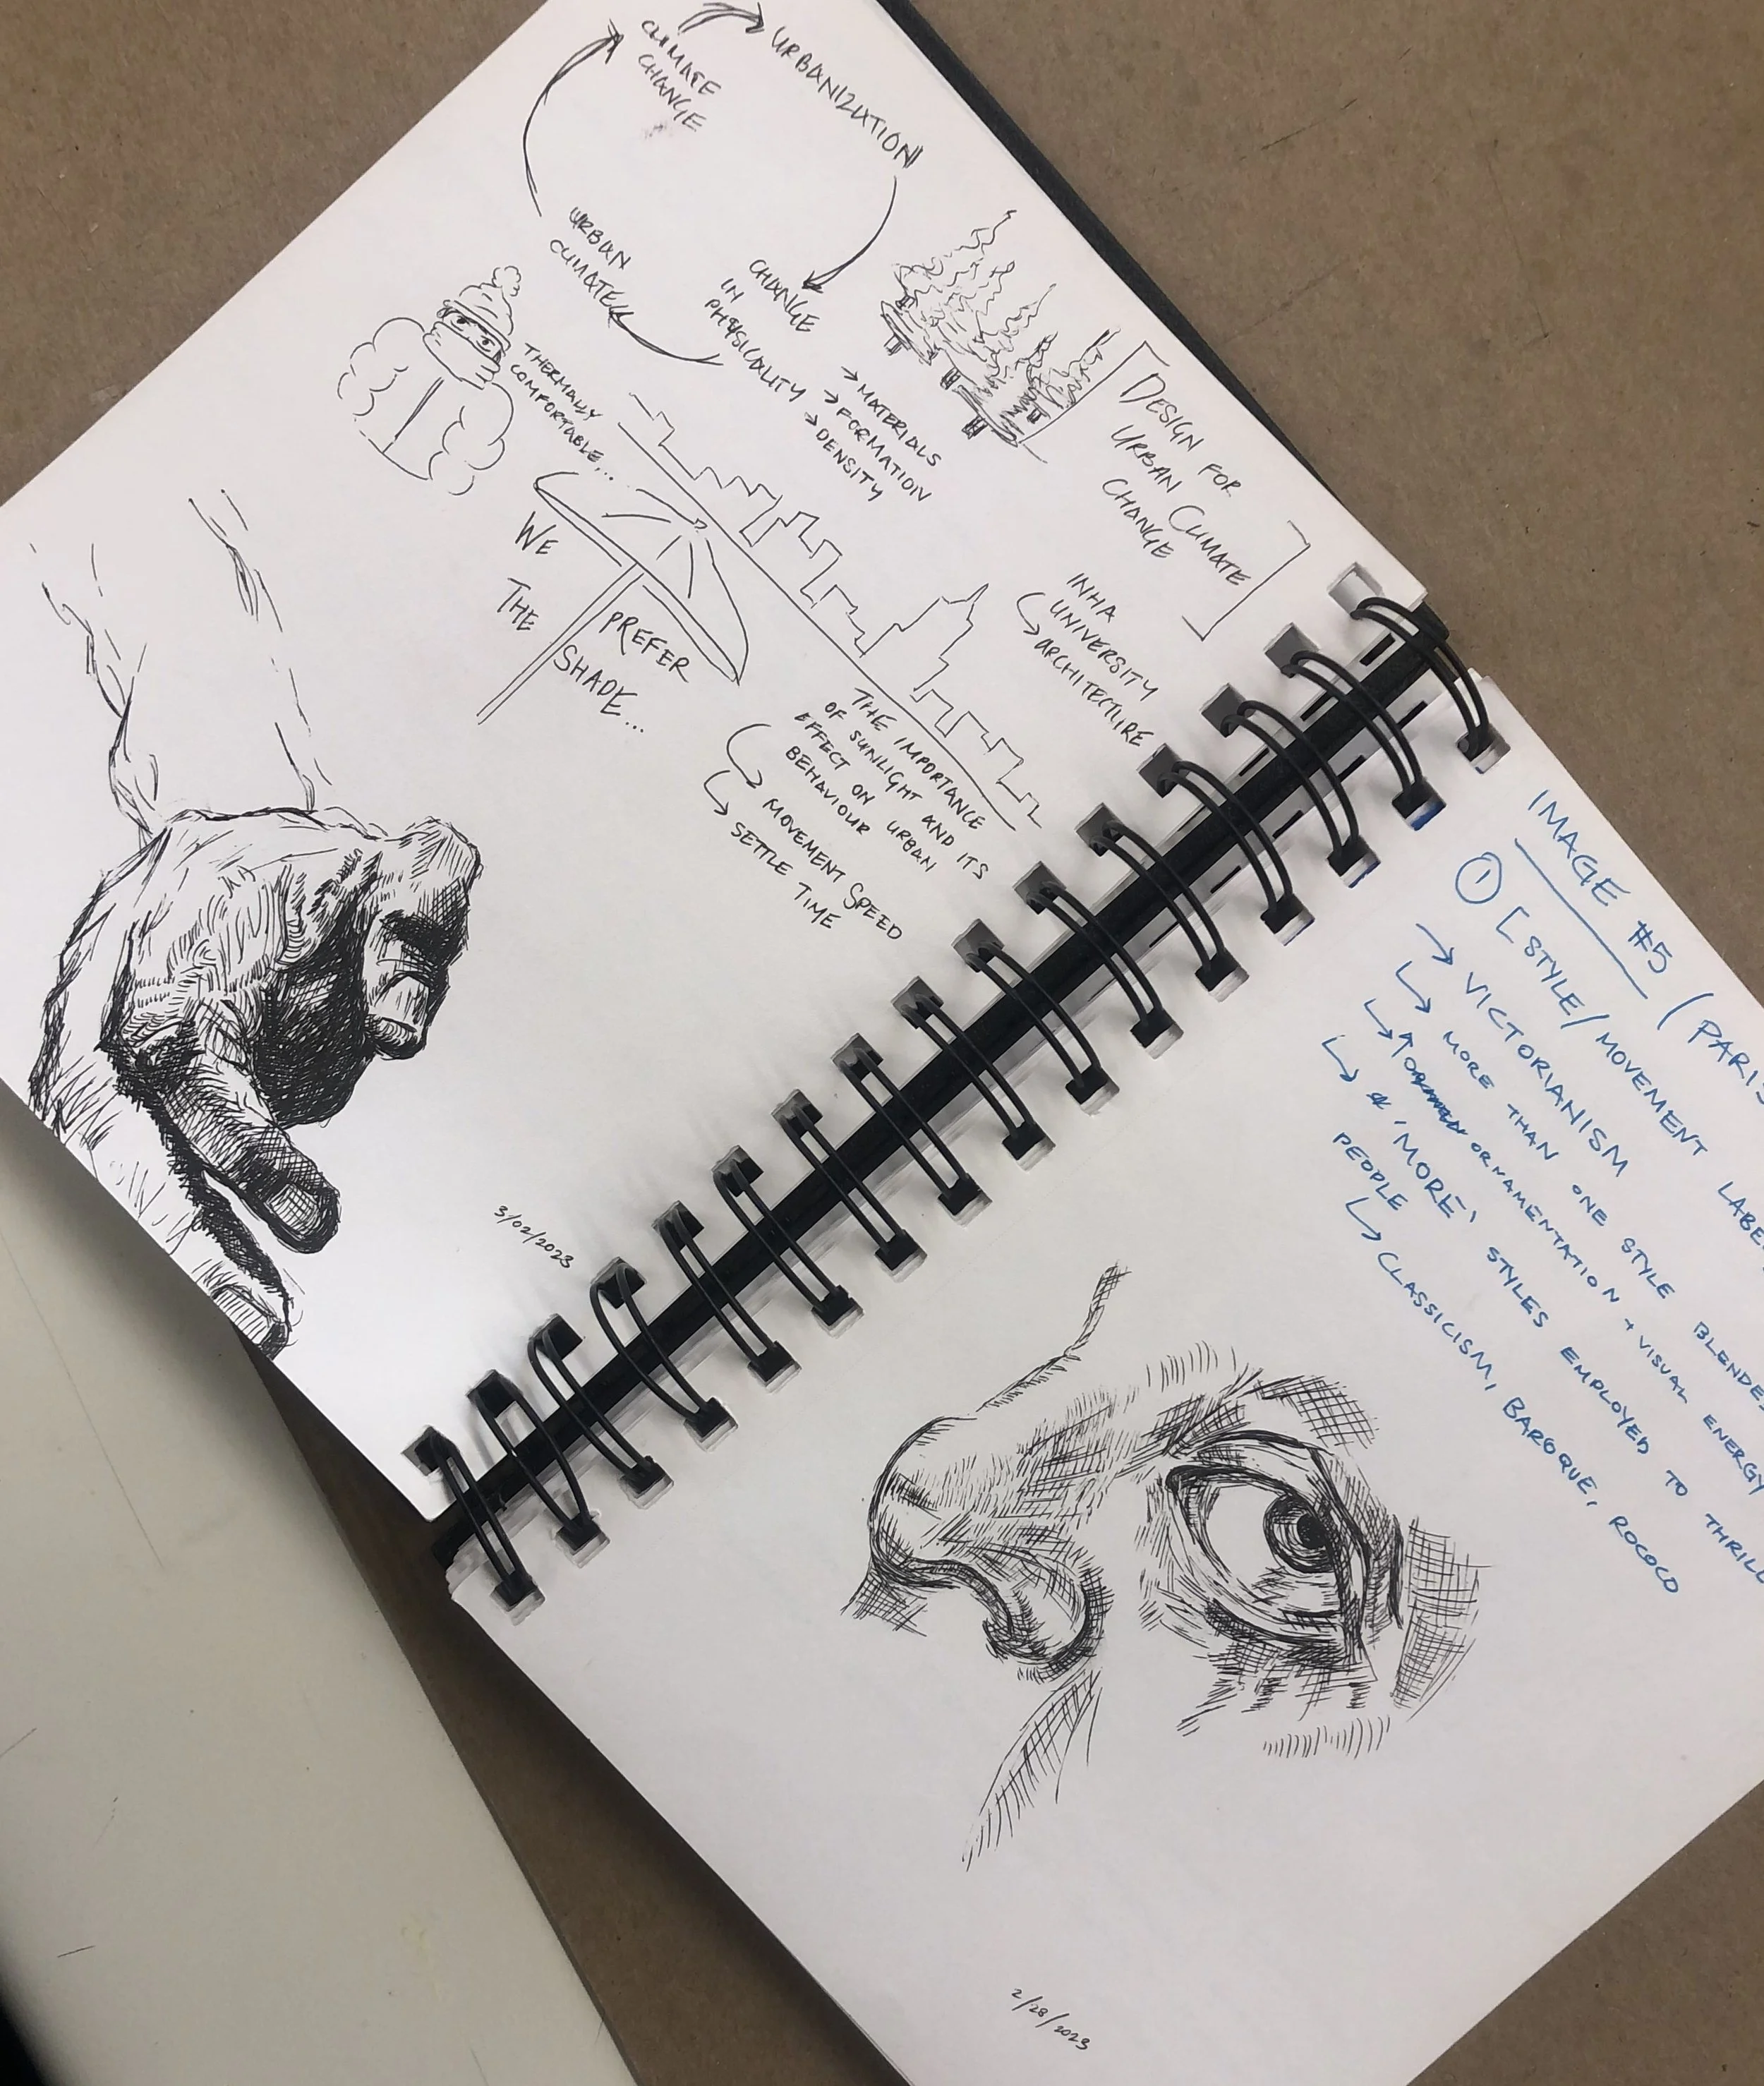 CLIMATE
CHANGE
URBANIZATION
CHANGE
IN
PHYSICALITY
→ MATERIALS
→ FORMATION
→ DENSITY
URBAN
CLIMATE
[DESIGN FOR
URBAN CLIMATE
CHANGE]
INHA
UNIVERSITY
ARCHITECTURE
THERMALLY
COMFORTABLE...
WE PREFER
THE SHADE...
THE IMPORTANCE
OF SUNLIGHT AND ITS
EFFECT ON URBAN
BEHAVIOUR
MOVEMENT SPEED
SETTLE TIME
3/02/2023
IMAGE #5 (PARIS
① [STYLE/MOVEMENT
→ VICTORIANISM
MORE THAN ONE STYLE
↑ ORNAMENTATION + VISUAL ENERGY
'MORE' STYLES EMPLOYED TO
PEOPLE
CLASSICISM, BAROQUE, ROCOCO
2/28/2023